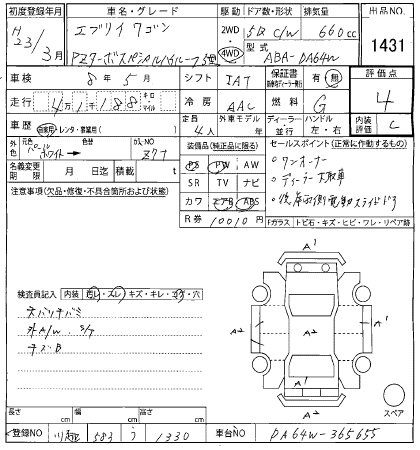 初度登録年月 車名・グレード 駆動 ドア数・形状 排気量 出品NO.
H23/3月 エブリイワゴン 2WD・4WD 5D C/W 660cc 1431
PZターボスペシャルハイルーフ5型 型式 ABA-DA64W
車検 8年5月 シフト IAT 保証書 有・無 評価点
走行 41188 キロ・マイル 冷房 AAC 燃料 G 4
車歴 自家用・レンタ・事業用( ) 定員 4人 外車モデル 年 ディーラー・並行 ハンドル 左・右 内装評価 C
外色 元色 パールホワイト 色替 カラーNO Z7T
装備品(純正品に限る) セールスポイント(正常に作動するもの)
名義変更期限 月 日迄 積載 t
PS PW AW
SR TV ナビ
カワ エアB ABS
・ワンオーナー
・ディーラー下取車
・後席両側電動スライドドア
注意事項(欠品・修復・不具合箇所および状態)
R券 10010円
Fガラス トビ石・キズ・ヒビ・ワレ・リペア跡
検査員記入 内装 汚レ・スレ・キズ・キレ・コゲ・穴
外A/W
キズB
A1
A2 A2 A2
A1 A1
A1
スペア
長さ cm 幅 cm 高さ cm
登録NO 583 う 1330 車台NO DA64W-365655